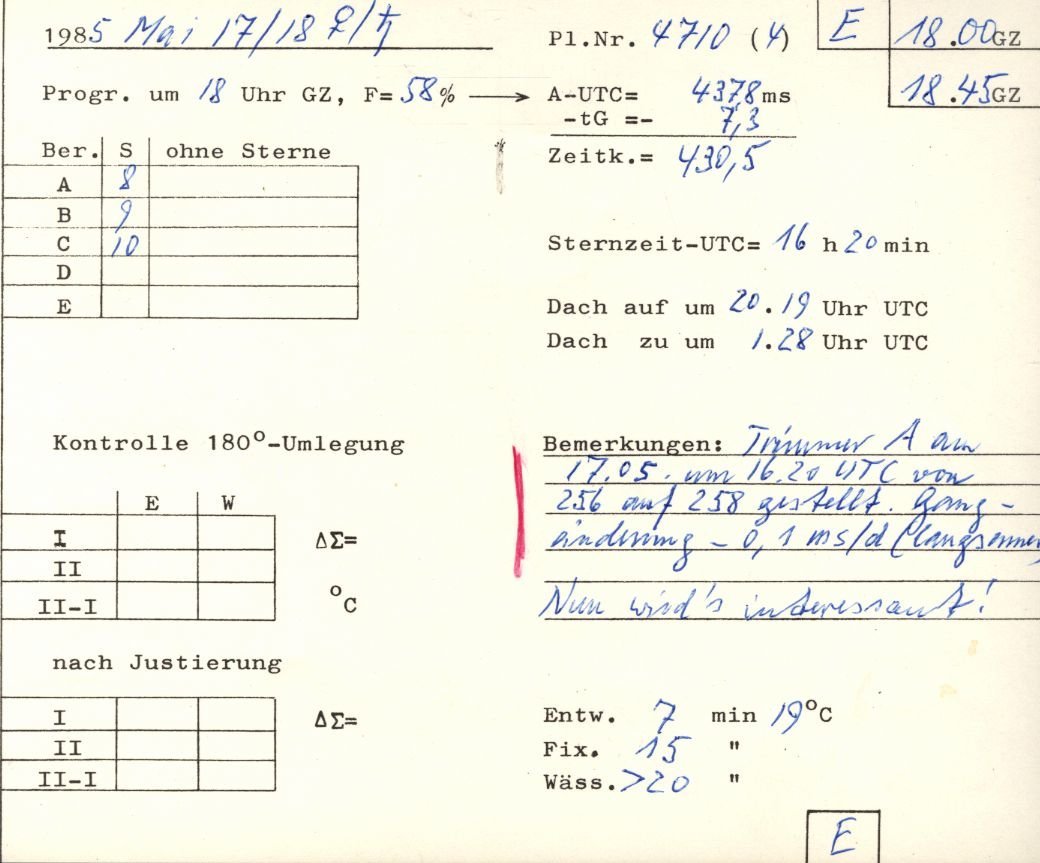 1985 Mai 17/18 ♀/♄ Pl.Nr. 4710 (4) E 18.00 GZ
Progr. um 18 Uhr GZ, F= 58% → A-UTC= 437,8 ms 18.45 GZ
-tG =- 7,3
Ber. S ohne Sterne Zeitk.= 430,5
A 8
B 9
C 10 Sternzeit-UTC= 16 h 20 min
D
E Dach auf um 20.19 Uhr UTC
Dach zu um 1.28 Uhr UTC
Kontrolle 180°-Umlegung Bemerkungen: Trimmer A am
17.05. um 16.20 UTC von
E W 256 auf 258 gestellt. Gang-
I ΔΣ= änderung - 0,1 ms/d (langsamer)
II
II-I °C Nun wird's interessant!
nach Justierung
I ΔΣ= Entw. 7 min 19°C
II Fix. 15 "
II-I Wäss. >20 "
E